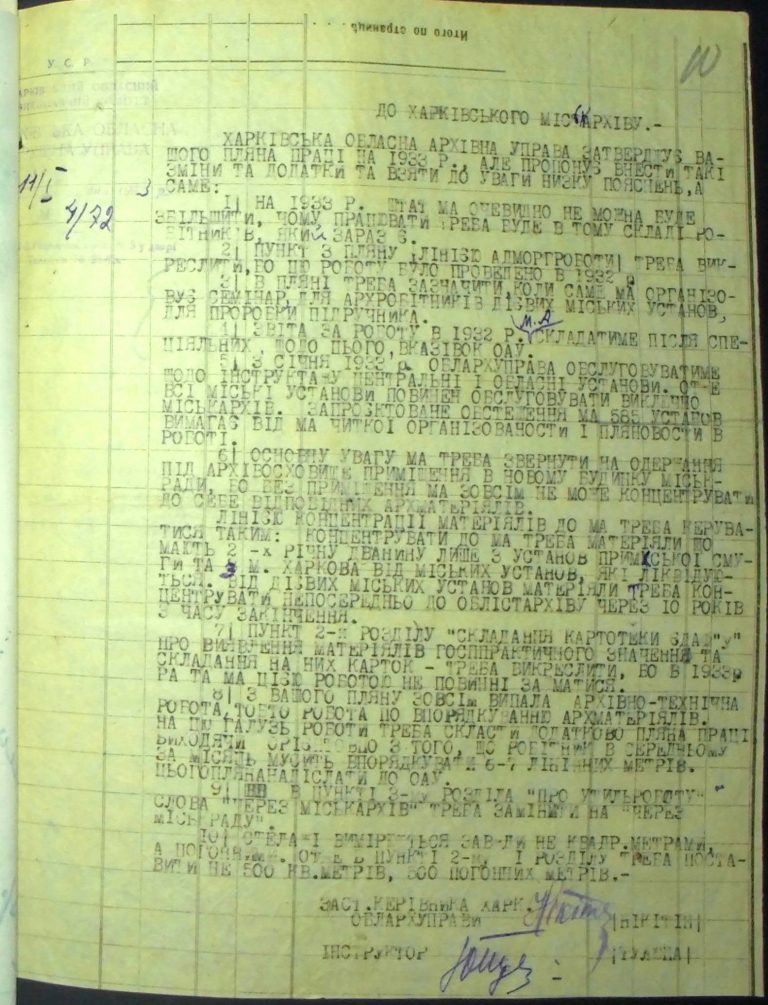 Итого по страниц.
У. С. Р.
10
ХАРКІВСЬКИЙ ОБЛАСНИЙ
ОБЛАСНА
УПРАВА
11/І
3
4/72
ДО ХАРКІВСЬКОГО МІСЬКАРХІВУ.-
ХАРКІВСЬКА ОБЛАСНА АРХІВНА УПРАВА ЗАТВЕРДЖУЄ ВА-
ШОГО ПЛЯНА ПРАЦІ НА 1933 Р., АЛЕ ПРОПОНУЄ ВНЕСТИ ТАКІ
ЗМІНИ ТА ДОДАТКИ ТА ВЗЯТИ ДО УВАГИ НИЗКУ ПОЯСНЕНЬ, А
САМЕ:
1| НА 1933 Р. ШТАТ МА ОЧЕВИДНО НЕ МОЖНА БУДЕ
ЗБІЛЬШИТИ, ЧОМУ ПРАЦЮВАТИ ТРЕБА БУДЕ В ТОМУ СКЛАДІ РО-
БІТНИКІВ, ЯКИЙ ЗАРАЗ Є.
2| ПУНКТ 3 ПЛЯНУ |ЛІНІЄЮ АДМОРГРОБОТИ| ТРЕБА ВИК-
РЕСЛИТИ, БО ЦЮ РОБОТУ БУЛО ПРОВЕДЕНО В 1932 Р.
3| В ПЛЯНІ ТРЕБА ЗАЗНАЧИТИ КОЛИ САМЕ МА ОРГАНІЗО-
ВУЄ СЕМІНАР, ДЛЯ АРХРОБІТНИКІВ ДІЄВИХ МІСЬКИХ УСТАНОВ,
ДЛЯ ПРОРОБКИ ПІДРУЧНИКА.
М.А
4| ЗВІТА ЗА РОБОТУ В 1932 Р. СКЛАДАТИМЕ ПІСЛЯ СПЕ-
ЦІЯЛЬНИХ, ЩОДО ЦЬОГО, ВКАЗІВОК ОАУ.
5| З СІЧНЯ 1933 Р. ОБЛАРХУПРАВА ОБСЛУГОВУВАТИМЕ
ЩОДО ІНСТРУКТАЖУ ЦЕНТРАЛЬНІ І ОБЛАСНІ УСТАНОВИ. ОТЖЕ
ВСІ МІСЬКІ УСТАНОВИ ПОВИНЕН ОБСЛУГОВУВАТИ ВИКЛЮЧНО
МІСЬКАРХІВ. ЗАПРОЄКТОВАНЕ ОБСТЕЖЕННЯ МА 585 УСТАНОВ
ВИМАГАЄ ВІД МА ЧИТКОЇ ОРГАНІЗОВАНОСТИ І ПЛЯНОВОСТИ В
РОБОТІ.
6| ОСНОВНУ УВАГУ МА ТРЕБА ЗВЕРНУТИ НА ОДЕРЖАННЯ
ПІД АРХІВОСХОВИЩЕ ПРИМІЩЕННЯ В НОВОМУ БУДИНКУ МІСЬК-
РАДИ, БО БЕЗ ПРИМІЩЕННЯ МА ЗОВСІМ НЕ МОЖЕ КОНЦЕНТРУВАТИ
ДО СЕБЕ ВІДПОВІДНИХ АРХМАТЕРІЯЛІВ.
ЛІНІЄЮ КОНЦЕНТРАЦІЇ МАТЕРІЯЛІВ ДО МА ТРЕБА КЕРУВА-
ТИСЯ ТАКИМ: КОНЦЕНТРУВАТИ ДО МА ТРЕБА МАТЕРІЯЛИ ЩО
МАЮТЬ 2 -Х РІЧНУ ДАВНИНУ ЛИШЕ З УСТАНОВ ПРИМІСЬКОЇ СМУ-
ГИ ТА З М. ХАРКОВА ВІД МІСЬКИХ УСТАНОВ, ЯКІ ЛІКВІДУЮ-
ТЬСЯ. ВІД ДІЄВИХ МІСЬКИХ УСТАНОВ МАТЕРІЯЛИ ТРЕБА КОН-
ЦЕНТРУВАТИ НЕПОСЕРЕДНЬО ДО ОБЛІСТАРХІВУ ЧЕРЕЗ 10 РОКІВ
З ЧАСУ ЗАКІНЧЕННЯ.
7| ПУНКТ 2-й РОЗДІЛУ "СКЛАДАННЯ КАРТОТЕКИ
ПРО ВИЯВЛЕННЯ МАТЕРІЯЛІВ ГОСППРАКТИЧНОГО ЗНАЧЕННЯ ТА
СКЛАДАННЯ НА НИХ КАРТОК - ТРЕБА ВИКРЕСЛИТИ, БО В 1933р
РА ТА МА ЦІЄЮ РОБОТОЮ НЕ ПОВИННІ ЗАЙМАТИСЯ.
8| З ВАШОГО ПЛЯНУ ЗОВСІМ ВИПАЛА АРХІВНО-ТЕХНІЧНА
РОБОТА, ТОБТО РОБОТА ПО ВПОРЯДКУВАННЮ АРХМАТЕРІЯЛІВ.
НА ЦЮ ГАЛУЗЬ РОБОТИ ТРЕБА СКЛАСТИ ДОДАТКОВО ПЛЯНА ПРАЦІ
ВИХОДЯЧИ ОРІЄНТОВНО З ТОГО, ЩО РОБІТНИК В СЕРЕДНЬОМУ
ЗА МІСЯЦЬ МУСИТЬ ВПОРЯДКУВАТИ 6-7 ЛІНІЙНИХ МЕТРІВ.
ЦЬОГОПЛЯНАНАДІСЛАТИ ДО ОАУ.
9| В ПУНКТІ 3-му РОЗДІЛА "ПРО УТИЛЬРОБОТУ"
СЛОВА "ЧЕРЕЗ МІСЬКАРХІВ" ТРЕБА ЗАМІНИТИ НА "ЧЕРЕЗ
МІСЬКРАДУ".
10| СТЕЛАЖІ ВИМІРЮЮТЬСЯ ЗАВЖДИ НЕ КВАДР.МЕТРАМИ,
А ПОГОННИМИ. ОТЖЕ В ПУНКТІ 2-му, І РОЗДІЛУ ТРЕБА ПОСТА-
ВИТИ НЕ 500 КВ.МЕТРІВ, 500 ПОГОННИХ МЕТРІВ.-
ЗАСТ.КЕРІВНИКА ХАРК.
ОБЛАРХУПРАВИ |НІКІТІН|
ІНСТРУКТОР